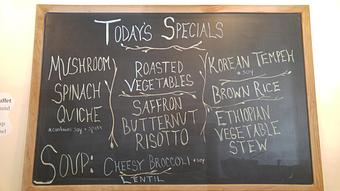 TODAY'S SPECIALS
MUSHROOM
SPINACH
QUICHE
*contains soy + gluten
ROASTED
VEGETABLES
SAFFRON
BUTTERNUT
RISOTTO
KOREAN TEMPEH
*soy
BROWN RICE
ETHIOPIAN
VEGETABLE
STEW
SOUP: CHEESY BROCCOLI *soy
LENTIL